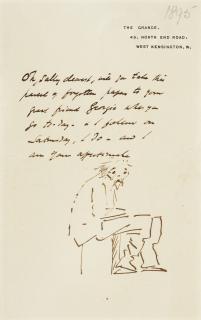 1895
THE GRANGE,
49, NORTH END ROAD,
WEST KENSINGTON, W.
Oh Sally dearest, will you take this
parcel of forgotten papers to your
great friend Georgie when you
go to-day - & I follow on
Saturday, I do - and I
am your affectionate